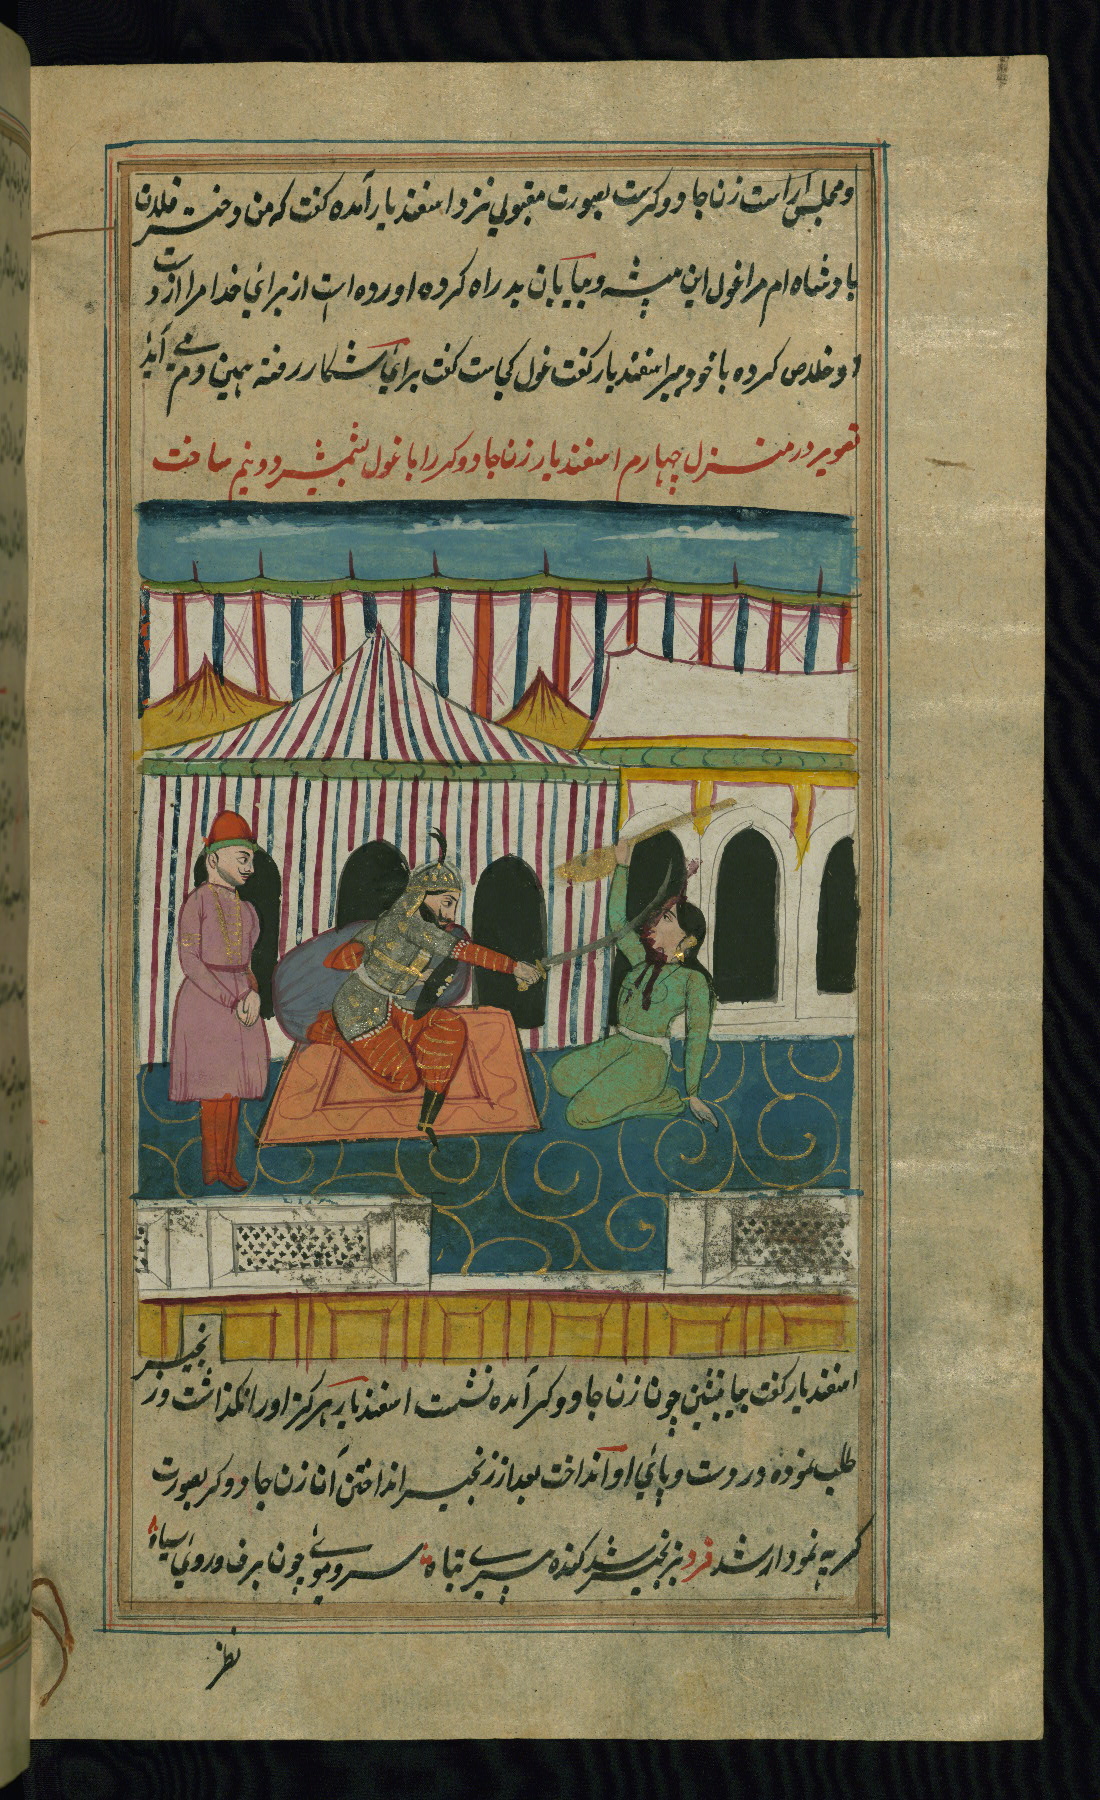 ومجلس آراست زن جادوگر بصورت مقبولی نزد اسفندیار آمده گفت که من دختر فلان
بادشاه ام مرا غول این بیشه و بیابان بدراه کرده اورده است از برای خدا مرا از دست
او خلاص کرده با خود ببر اسفندیار گفت غول کجاست گفت برای شکار رفته همین دم می آید
تصویر در منزل چهارم اسفندیار زن جادوگر را با غول بشمشیر دو نیم ساخت
اسفندیار گفت بیا بنشین چون زن جادوگر آمده نشست اسفندیار هرگز اورا نگذاشت و زنجیر
طلب نموده در دست و پای او انداخت بعد از زنجیر انداختن آن زن جادوگر بصورت
کریه نمودار شد فرد بزنجیر شد گنده پیری تباه سر و موی چون برف و روی سیاه
نظر